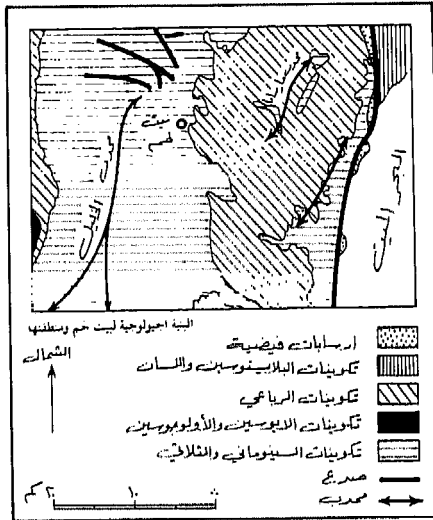 بيت
لحم
محدب الخليل
البحر الميت
البنية الجيولوجية لبيت لحم ومنطقتها
الشمال
ارسابات فيضية
تكوينات البلايستوسين واللسان
تكوينات الرباعي
تكوينات الايوسين والأوليجوسين
تكوينات السينوماني والثلاثي
صدع
محدب
١٠ ٢٠ كم